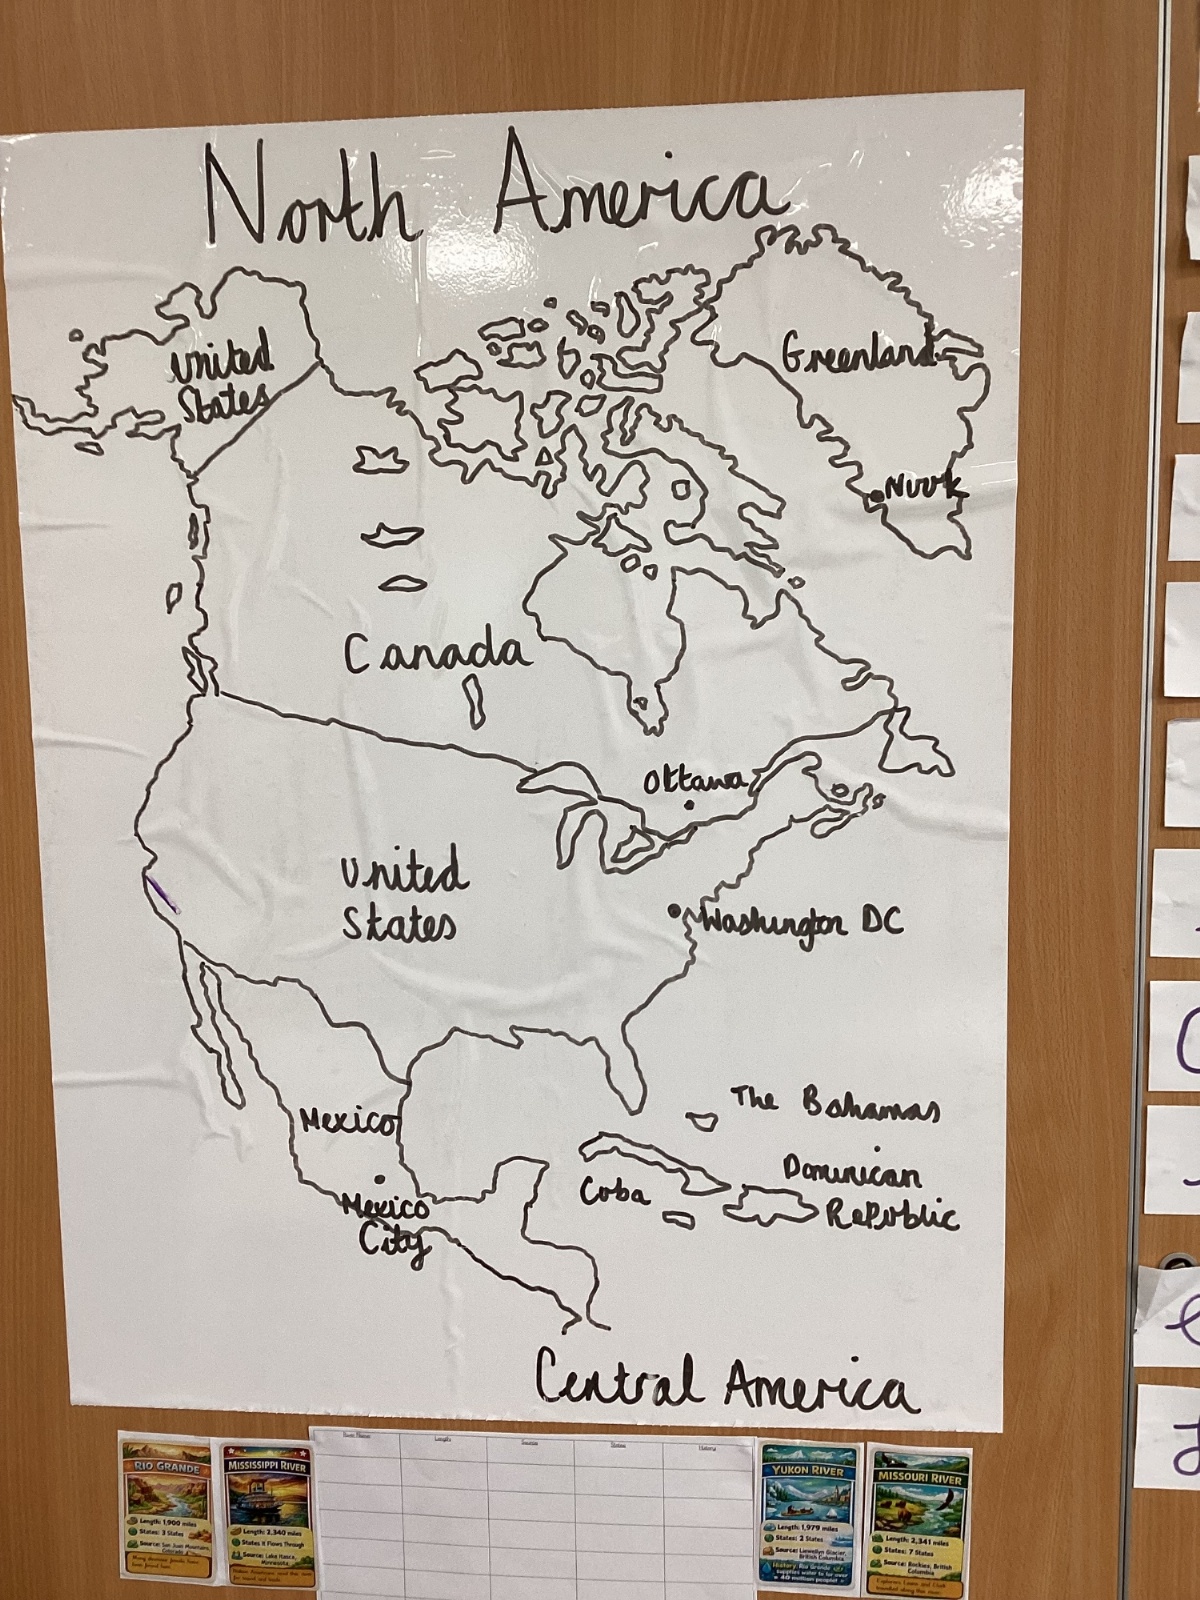 North America
United
States
Greenland
Nuuk
Canada
Ottawa
United
States
Washington DC
The Bahamas
Mexico
Dominican
Republic
Cuba
Mexico
City
Central America
River Name
Length
Source
States
History
RIO GRANDE
Length: 1,900 miles
States: 3 States
Source: San Juan Mountains,
Colorado
MISSISSIPPI RIVER
Length: 2,340 miles
States It Flows Through
Source: Lake Itasca,
Minnesota
YUKON RIVER
Length: 1,979 miles
States: 2 States
Source: Llewellyn Glacier,
British Columbia
History: Rio Grande
supplies water to far over
40 million people!
MISSOURI RIVER
Length: 2,341 miles
States: 7 States
Source: Rockies, British
Columbia